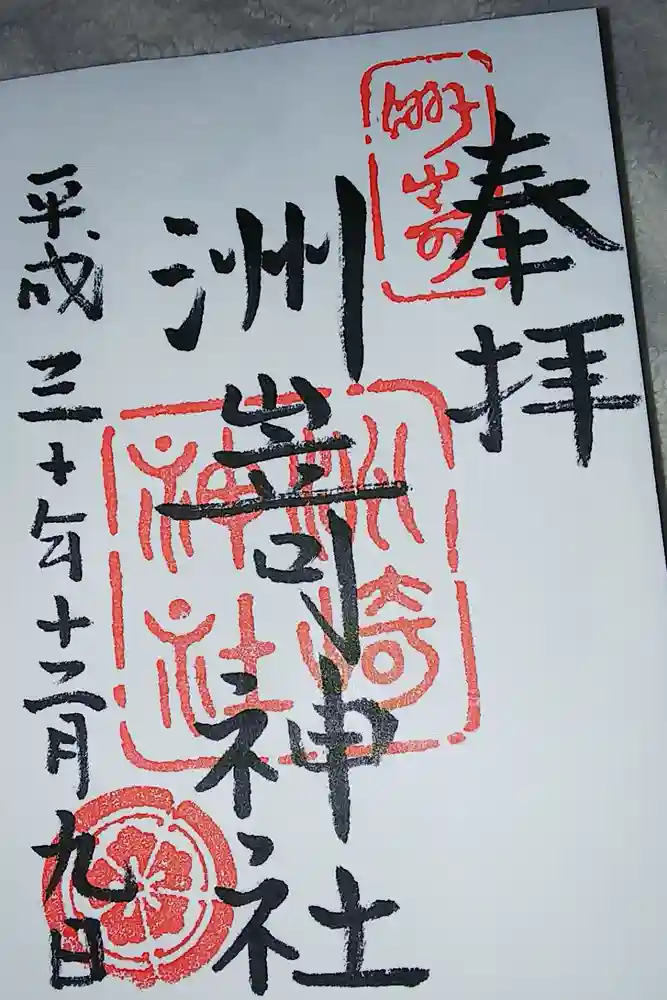 奉拝
洲嵜神社
平成三十年十二月九日
洲崎神社